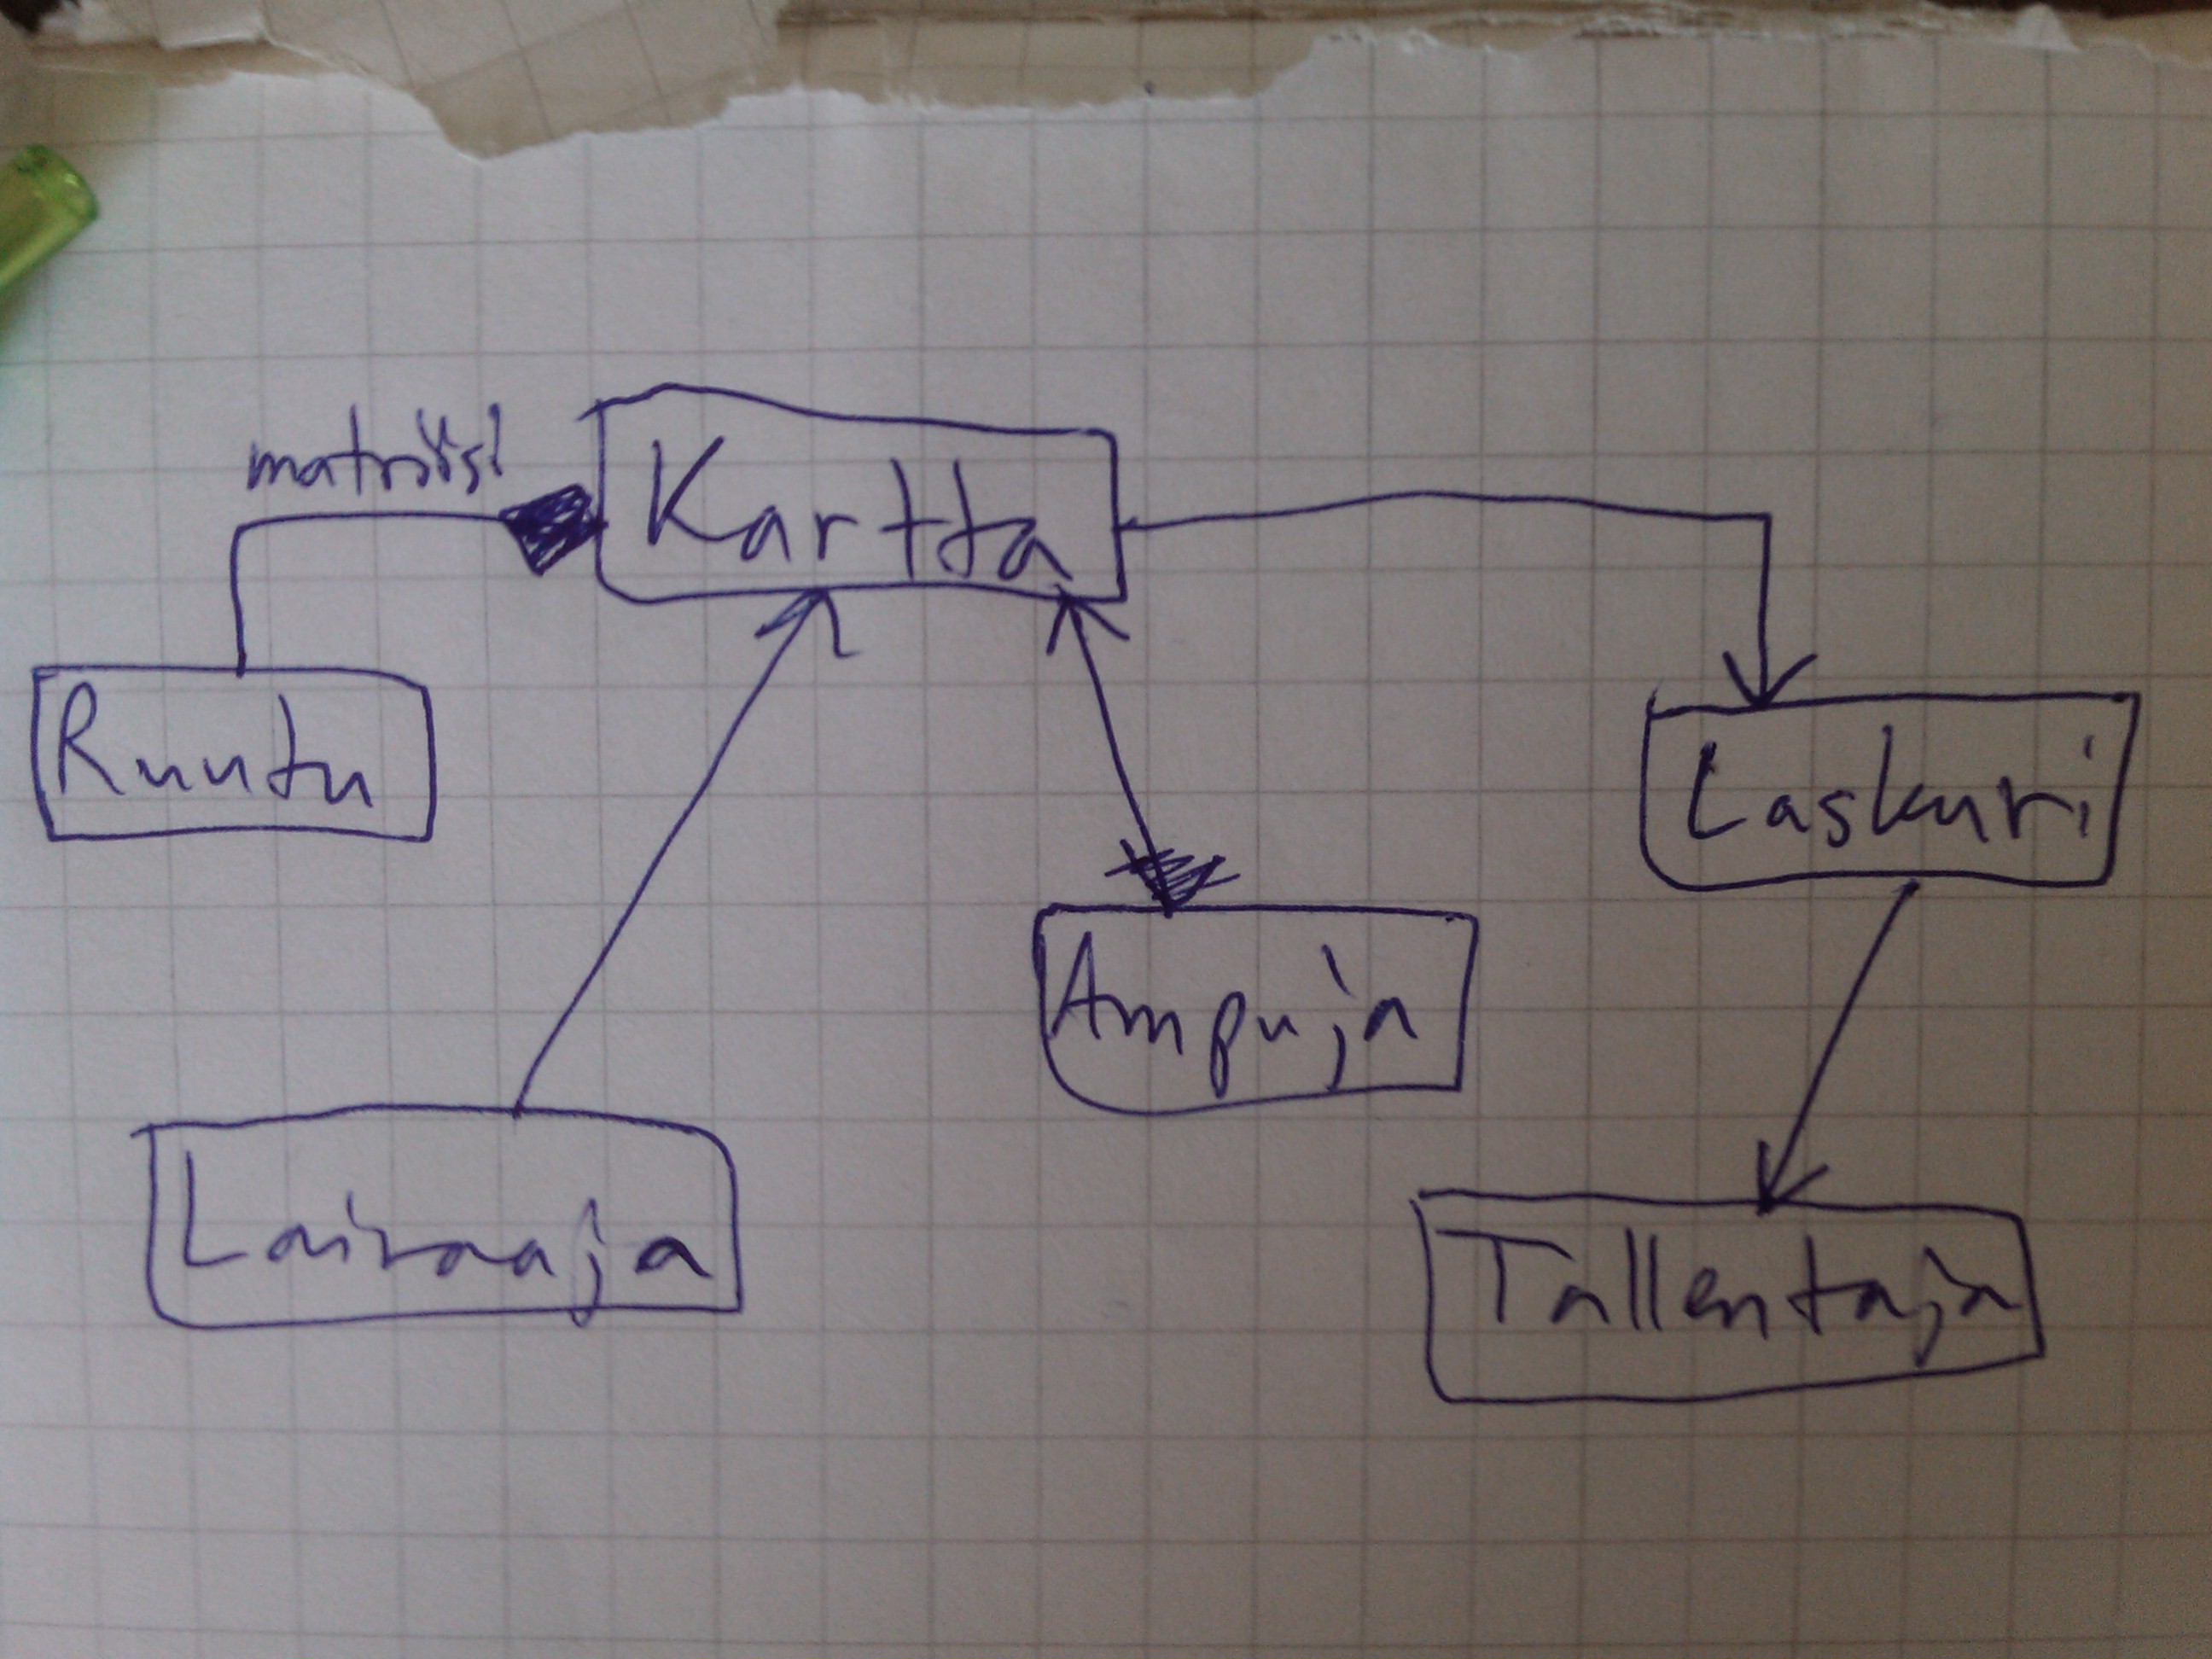 matriisi
Kartta
Ruutu
Laskuri
Ampuja
Laivaaja
Tallentaja